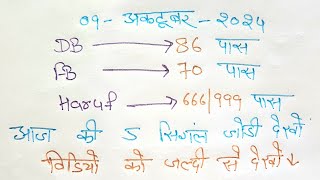 09 - अकटूबर - २०२५
DB → 86 पास
FB → 70 पास
Haruf → 666/999 पास
आज की 5 सिगंल जोडी देखों
विडियों को जल्दी से देखों ↓